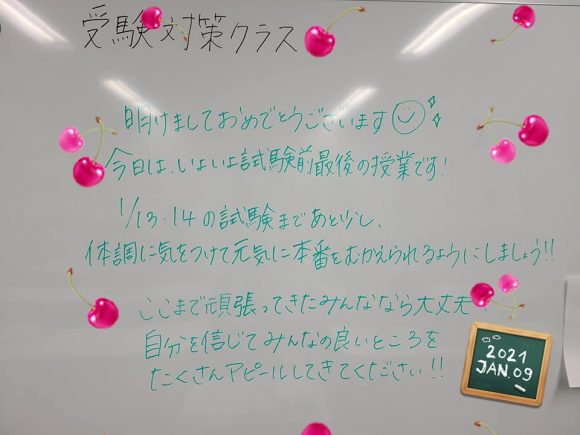 受験対策クラス
明けましておめでとうございます
今日は、いよいよ試験前最後の授業です!
1/13・14の試験まであと少し、
体調に気をつけて元気に本番をむかえられるようにしましょう!!
ここまで頑張ってきたみんななら大丈夫
自分を信じてみんなの良いところを
たくさんアピールしてきてください!!
2021
JAN.09